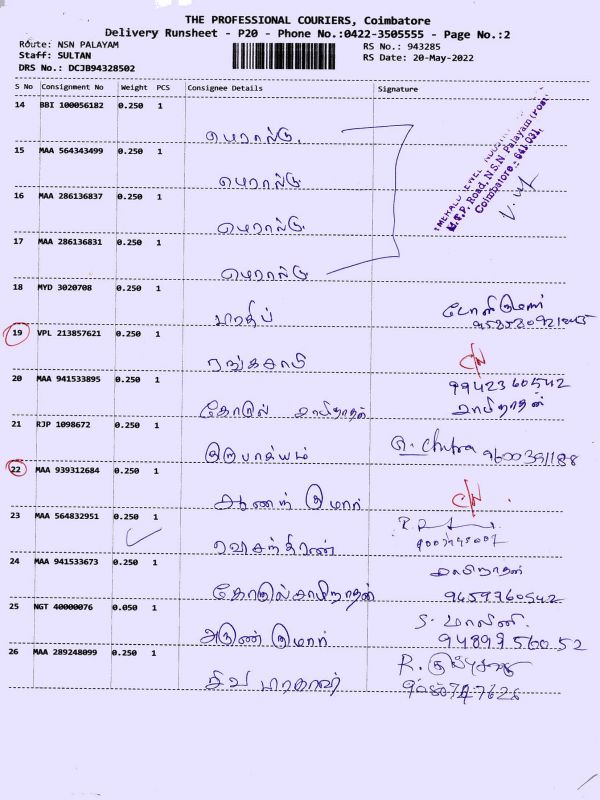 THE PROFESSIONAL COURIERS, Coimbatore
Delivery Runsheet - P20 - Phone No.:0422-3505555 - Page No.:2
Route: NSN PALAYAM RS No.: 943285
Staff: SULTAN RS Date: 20-May-2022
DRS No.: DCJB94328502
S No Consignment No Weight PCS Consignee Details Signature
14 BBI 100056182 0.250 1
எமரால்டு
M.T.P. Road, N.S.N Palayam (Post)
Coimbatore - 641 031.
15 MAA 564343499 0.250 1
எமரால்டு
16 MAA 286136837 0.250 1
எமரால்டு
17 MAA 286136831 0.250 1
எமரால்டு
18 MYD 3020708 0.250 1
பிரதீப்
19 VPL 213857621 0.250 1
ரங்கசாமி C/N
20 MAA 941533895 0.250 1
9942360542
21 RJP 1098672 0.250 1
Chitra 9600391188
22 MAA 939312684 0.250 1
ஆனந்த் குமார் C/N
23 MAA 564832951 0.250 1
24 MAA 941533673 0.250 1
9659760542
25 NGT 40000076 0.050 1
அருண் குமார் S. மாலினி
9489956052
26 MAA 289248099 0.250 1
சிவ R.